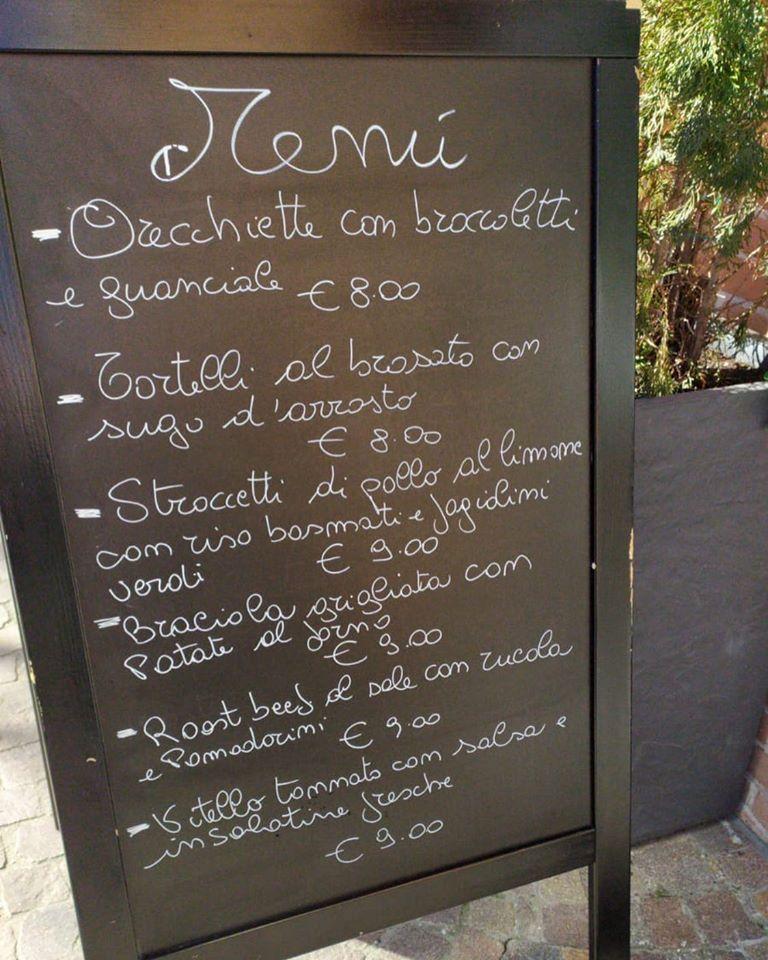 Menú
- Orecchiette con broccoletti
e guanciale € 8.00
- Tortelli al brasato con
sugo d'arrosto
€ 8.00
- Straccetti di pollo al limone
con riso basmati e fagiolini
verdi € 9.00
- Braciola grigliata con
Patate al forno
€ 9.00
- Roast beef al sale con rucola
e Pomodorini € 9.00
- Vitello tonnato con salsa e
insalatine fresche
€ 9.00